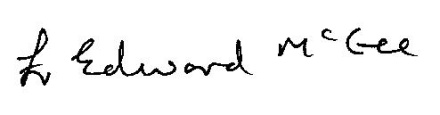 Fr Edward McGee